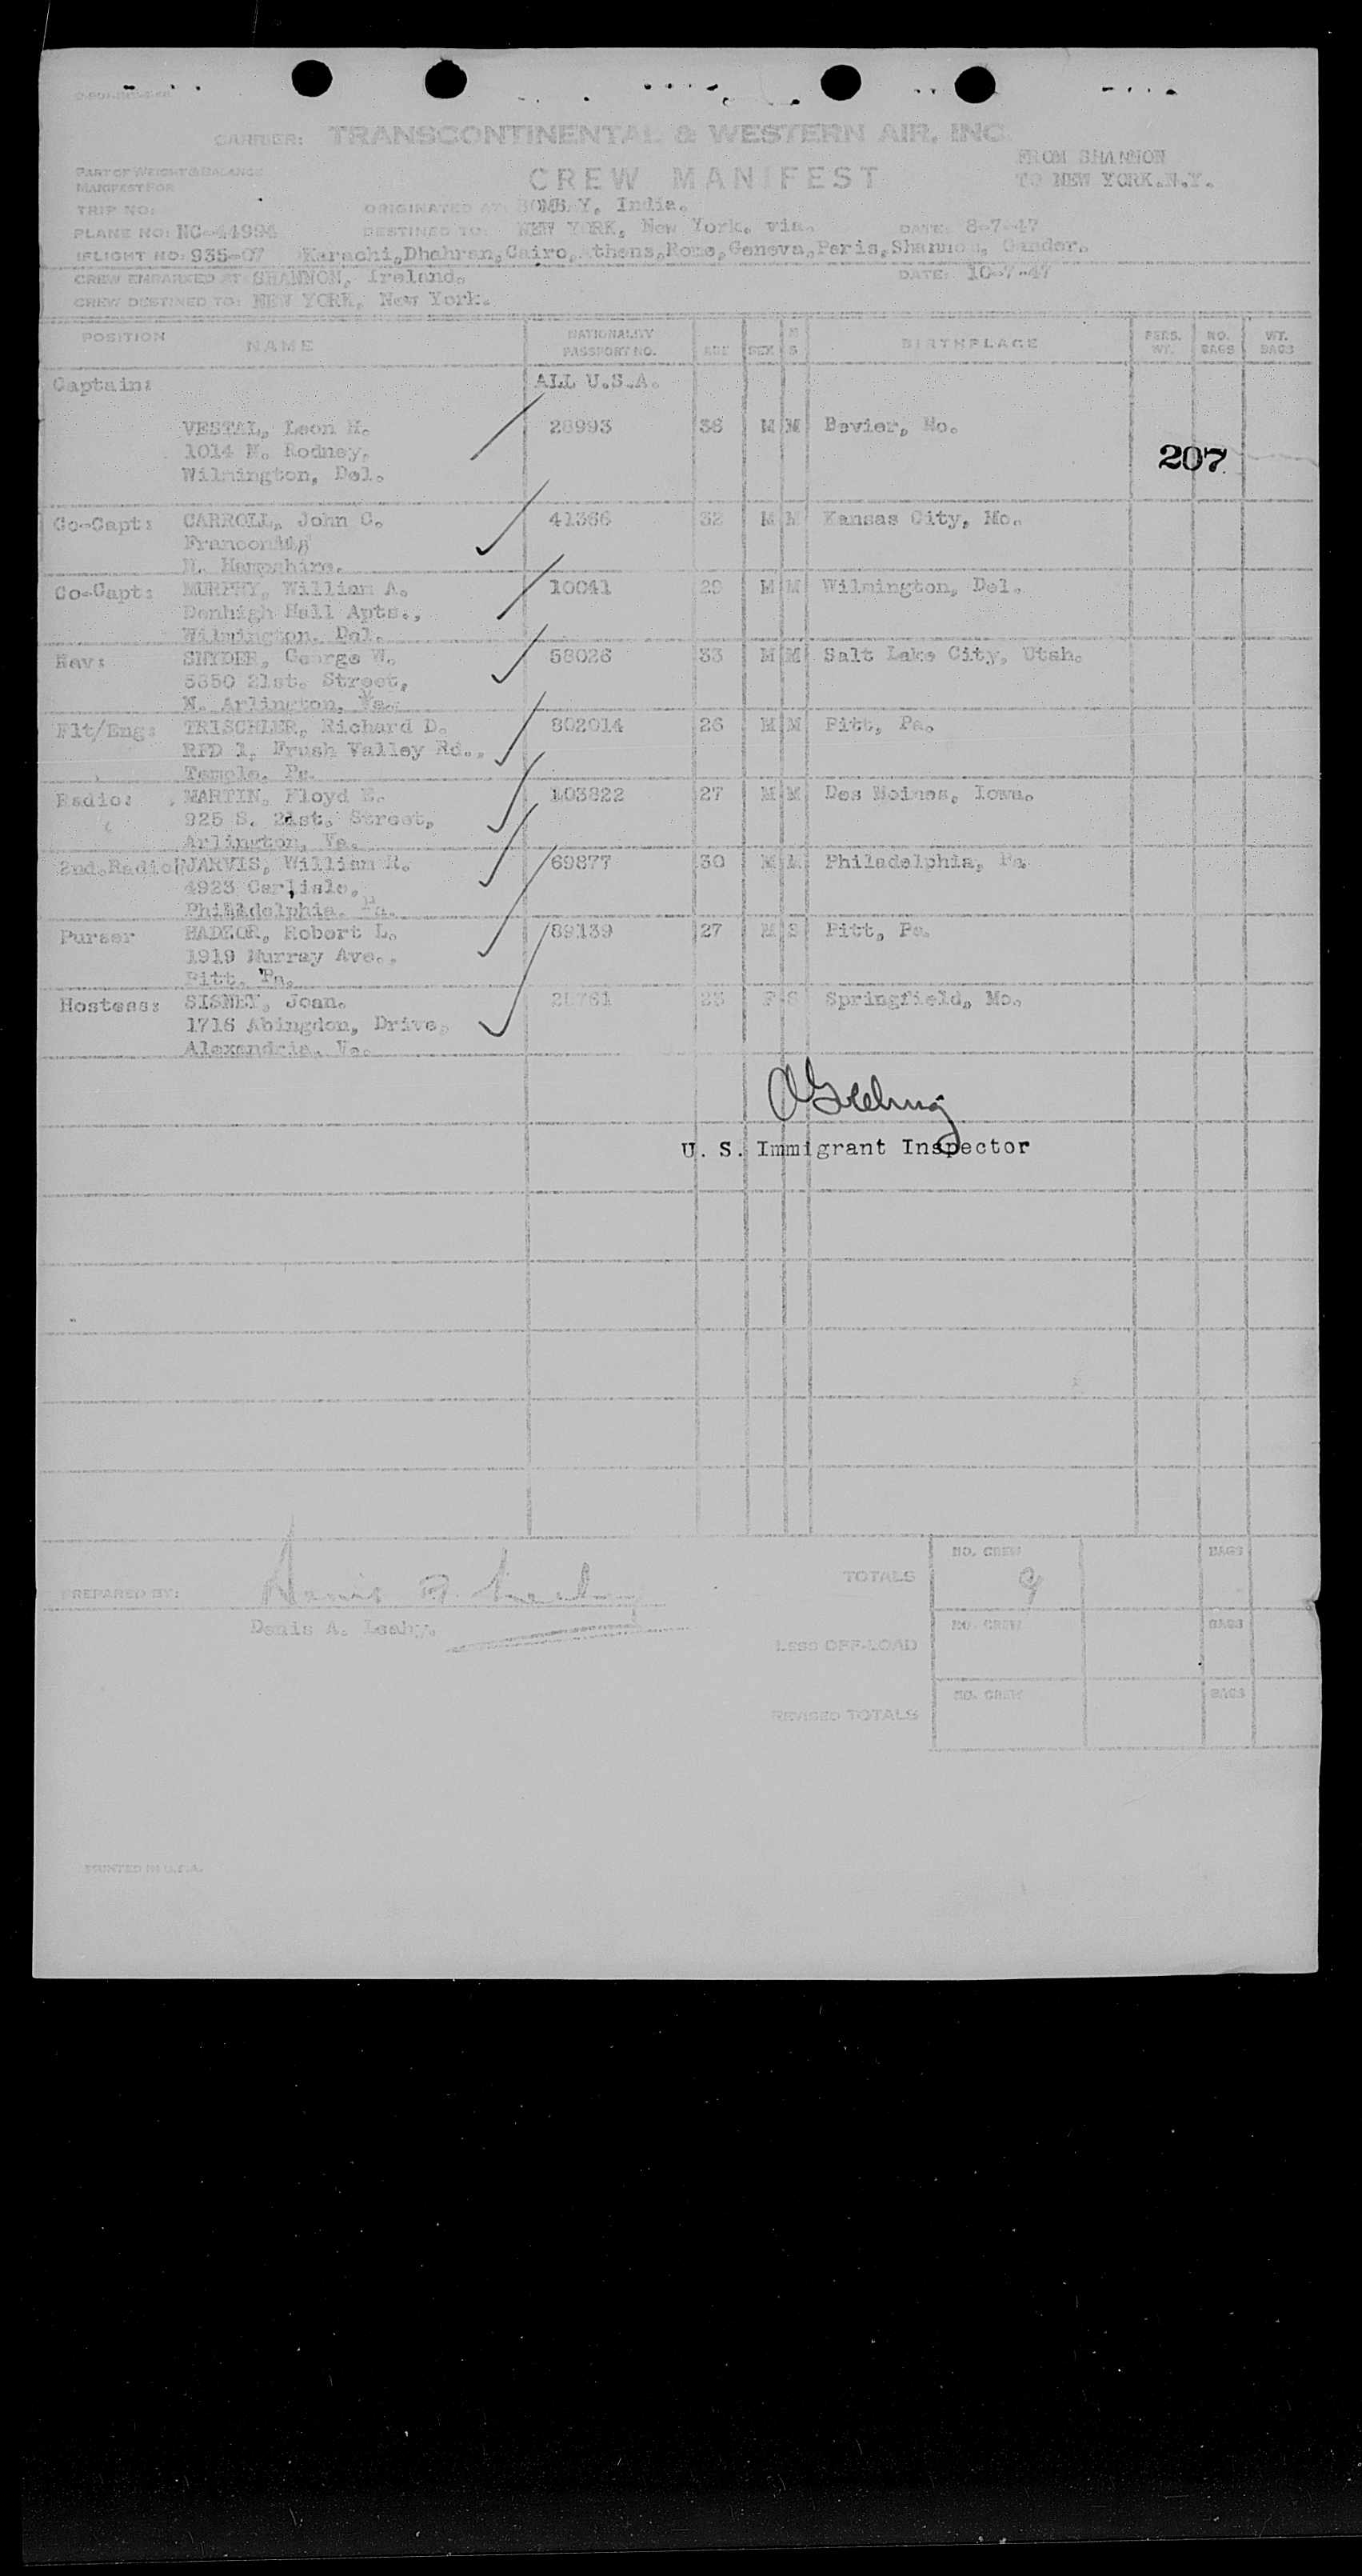 CARRIER: TRANSCONTINENTAL & WESTERN AIR, INC.
FROM SHANNON
PART OF WEIGHT & BALANCE
MANIFEST FOR
CREW MANIFEST
TO NEW YORK.N.Y.
TRIP NO:
ORIGINATED AT: BOMBAY, India.
PLANE NO: NC-44994
DESTINED TO: NEW YORK, New York. via.
DATE: 8-7-47
FLIGHT NO: 935-07 Karachi,Dhahran,Cairo,Athens,Rome,Geneva,Paris,Shannon, Gander.
CREW EMBARKED AT SHANNON, Ireland.
DATE: 10-7-47
CREW DESTINED TO: NEW YORK, New York.
POSITION NAME NATIONALITY PASSPORT NO. AGE SEX M S BIRTHPLACE PERS. WT. NO. BAGS WT. BAGS
Captain: ALL U.S.A.
VESTAL, Leon H. 28993 36 M M Bevier, Mo.
1014 N. Rodney,
207
Wilmington, Del.
Co-Capt: CARROLL, John C. 41366 32 M M Kansas City, Mo.
Franconia
N. Hampshire.
Co-Capt: MURPHY, William A. 10041 29 M M Wilmington, Del.
Denhigh Hall Apts.,
Wilmington. Del.
Nav: SNYDER, George W. 58026 33 M M Salt Lake City, Utah.
5850 21st. Street,
N. Arlington, Va.
Flt/Eng: TRISCHLER, Richard D. 802014 26 M M Pitt, Pa.
RFD 1, Frush Valley Rd.,
Temple. Pa.
Radio: MARTIN, Floyd E. 103822 27 M M Des Moines, Iowa.
925 S. 21st. Street,
Arlington, Va.
2nd.Radio JARVIS, William R. 69877 30 M M Philadelphia, Pa
4923 Carlisle,
Philadelphia. Pa.
Purser HADZOR, Robert L. 89139 27 M S Pitt, Pa.
1919 Murray Ave.,
Pitt. Pa.
Hostess: SISNEY, Joan. F S Springfield, Mo.
1716 Abingdon, Drive,
Alexandria. Va.
U. S. Immigrant Inspector
NO. CREW BAGS
TOTALS 9
PREPARED BY: Denis A. Leahy
Denis A. Leahy.
NO. CREW BAGS
LESS OFF-LOAD
NO. CREW BAGS
REVISED TOTALS
PRINTED IN U.S.A.